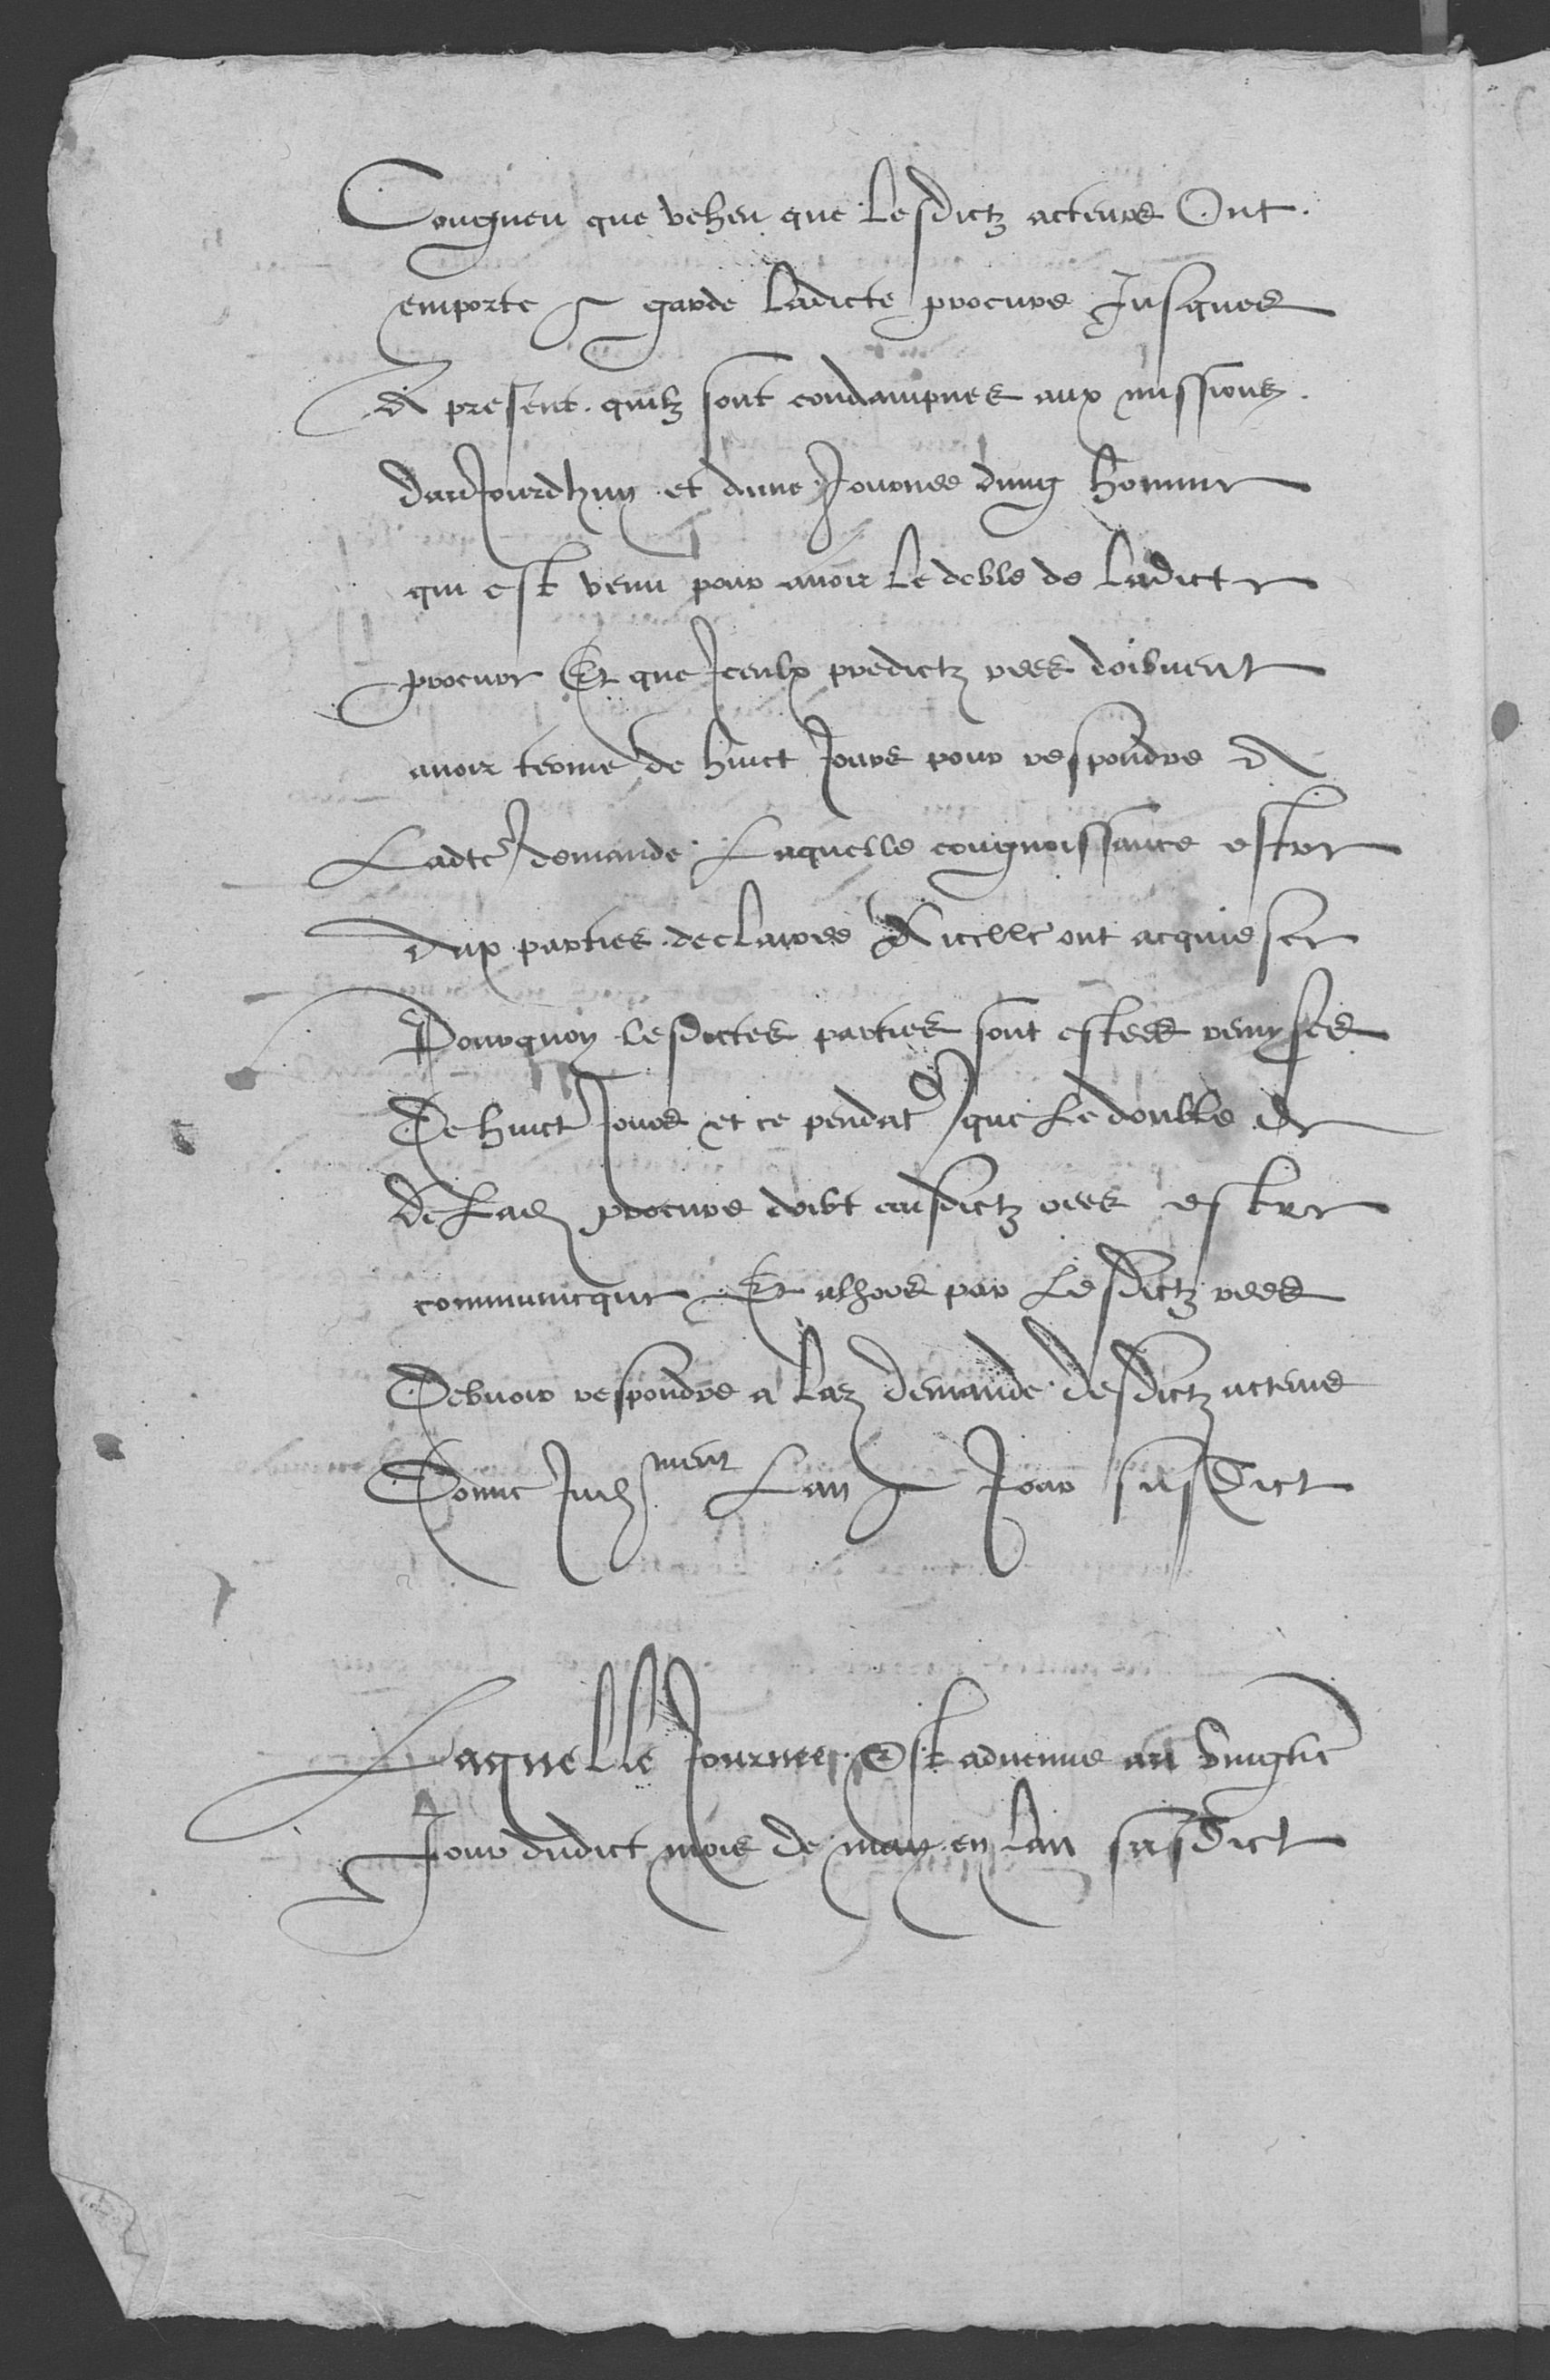 Congneu que veheu que lesdictz acteurs Ont
emporte et garde ladicte procure Jusques
A present quilz sont condampnes aux missions
daujourdhuy et dune Journee dung homme
qui est venu pour avoir le doble de ladicte
procure Et que Iceulx predictz rees doibvent
avoir terme de huict Jours pour respondre A
Ladte demande Laquelle congnoissance estre
Aux parties declairee A icelle ont acquiesce
Pourquoy lesdictes parties sont estees remyses
De huict Jours et ce pendat que Le double de
De Lad procure doibt ausdictz rees estre
communique Et alhors par Lesdictz rees
Debvoir respondre a lad demande desdictz acteurs
Donne Judment Lan et Jour susdict
Laquelle Journee Est advenue au vingtie
Jour dudict mois de may en lan susdict